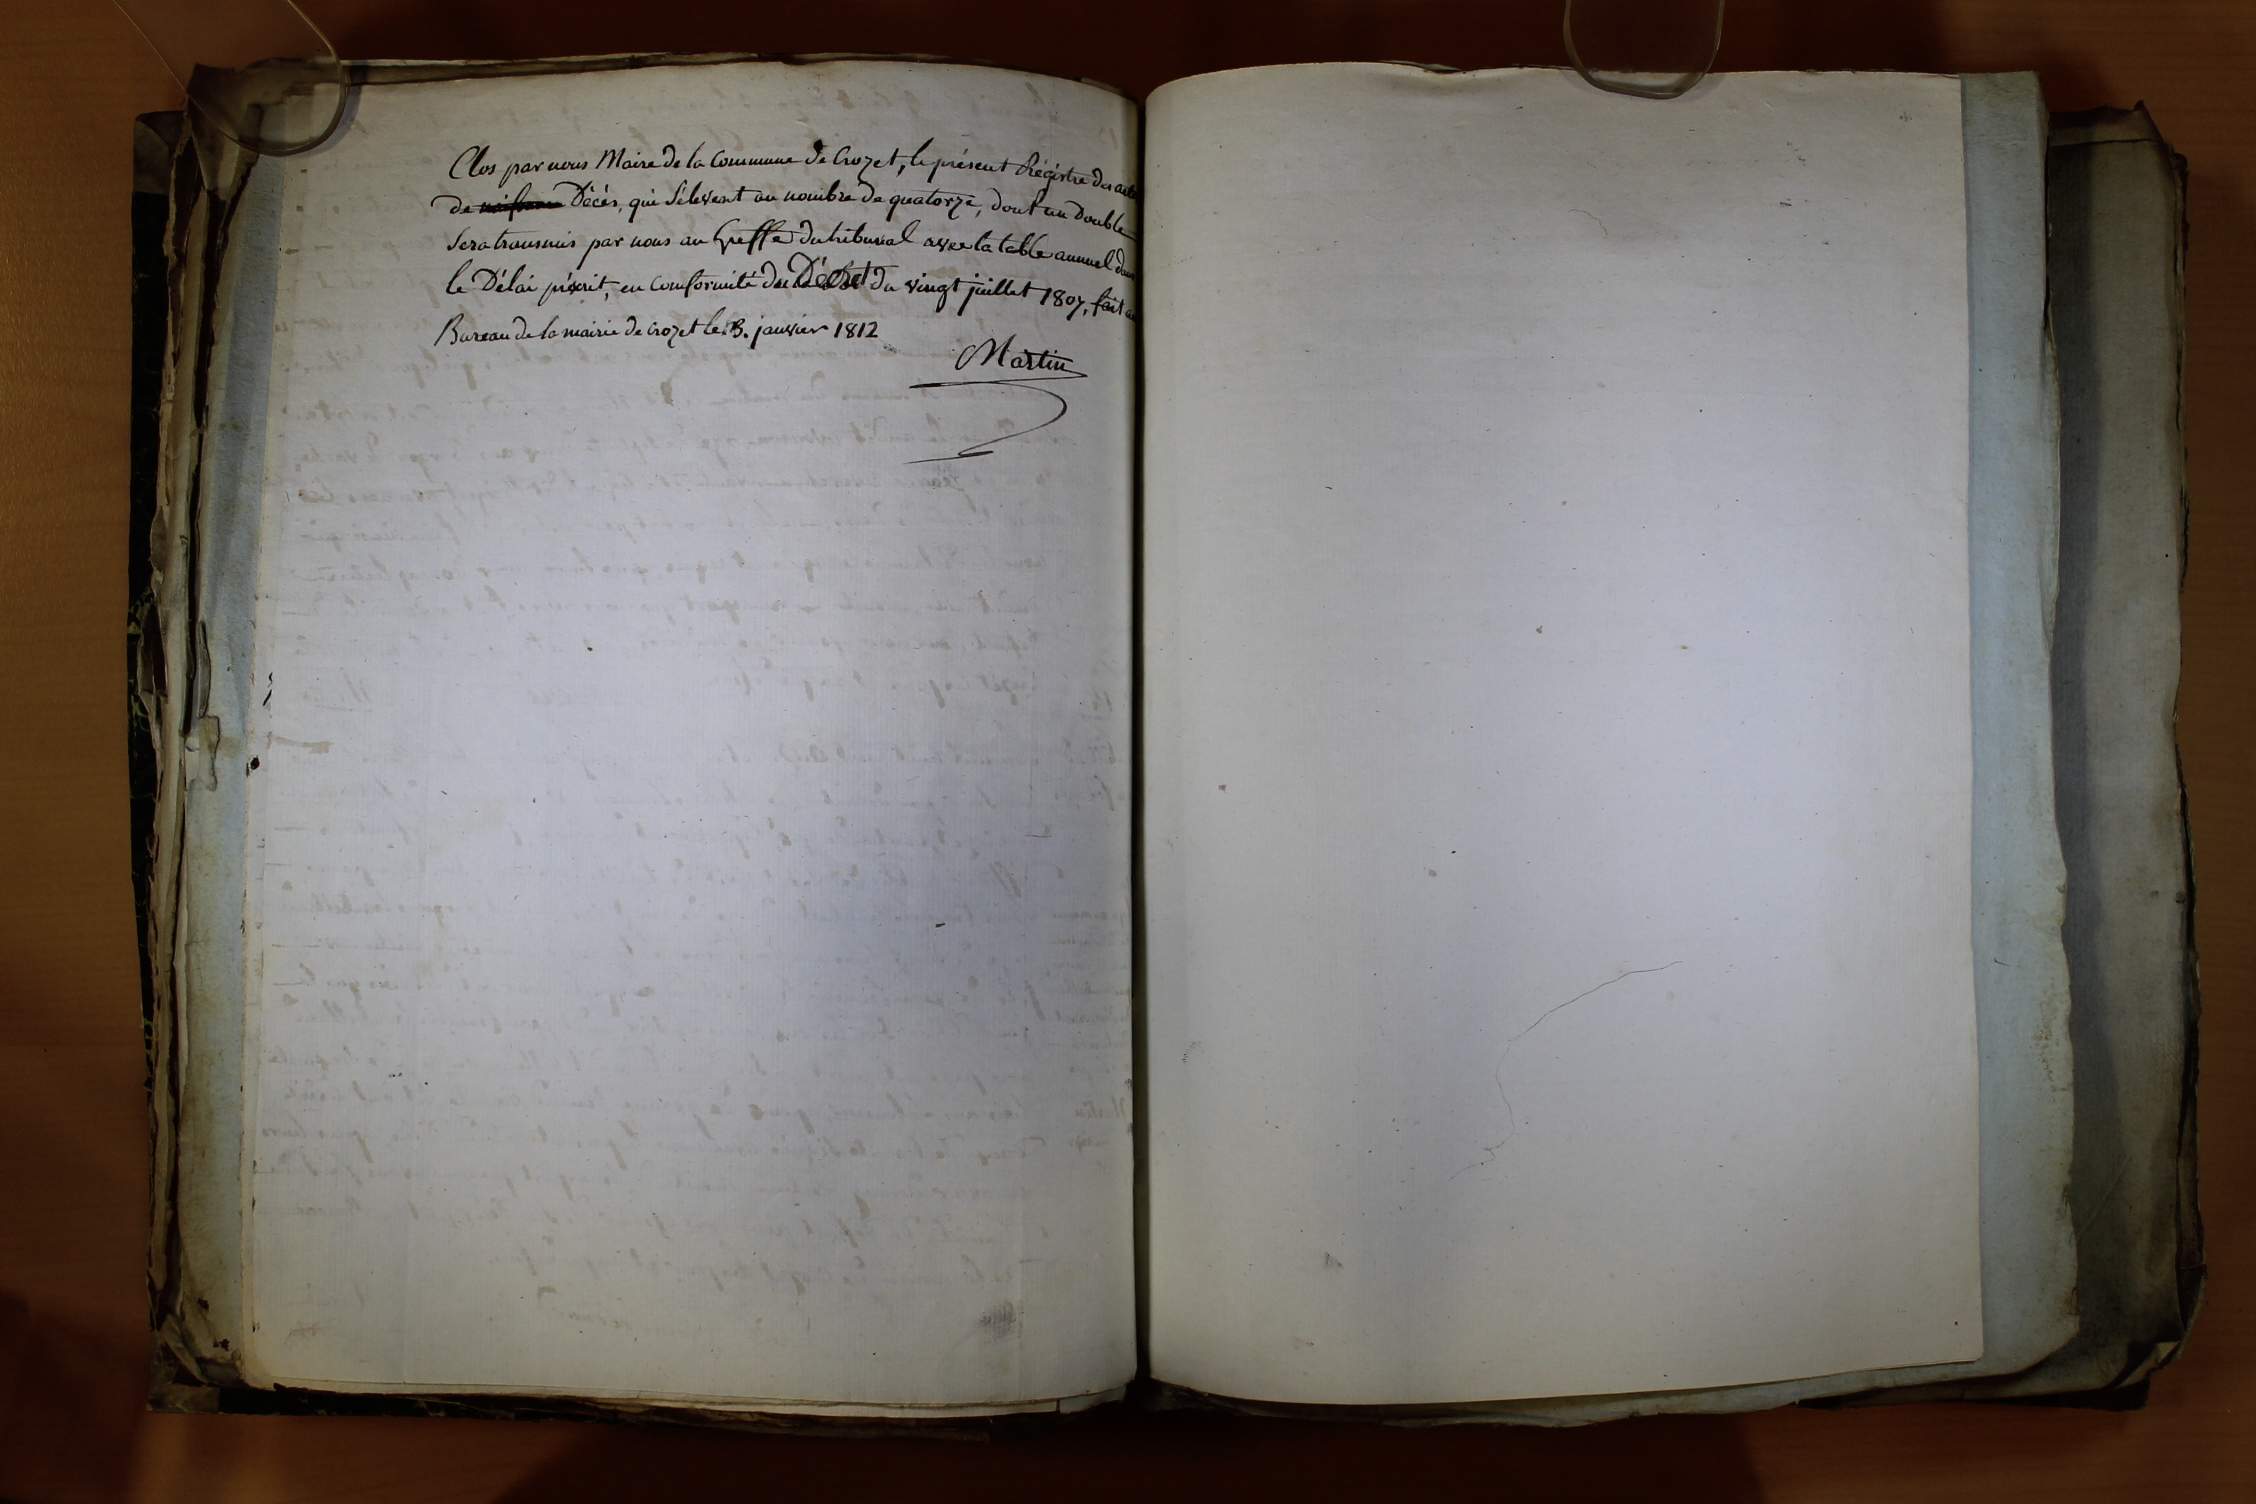 Clos par nous Maire de la Commune de Crozet, le présent Régistre des actes
de naissance Décès, qui S'élevent au nombre de quatorze, dont un Double
Sera transmis par nous au Greffe du tribunal avec la table annuel dans
le Délai préscrit, en Conformité du Décret du vingt juillet 1807, fait au
Bureau de la mairie de Crozet le 3. janvier 1812
Martin